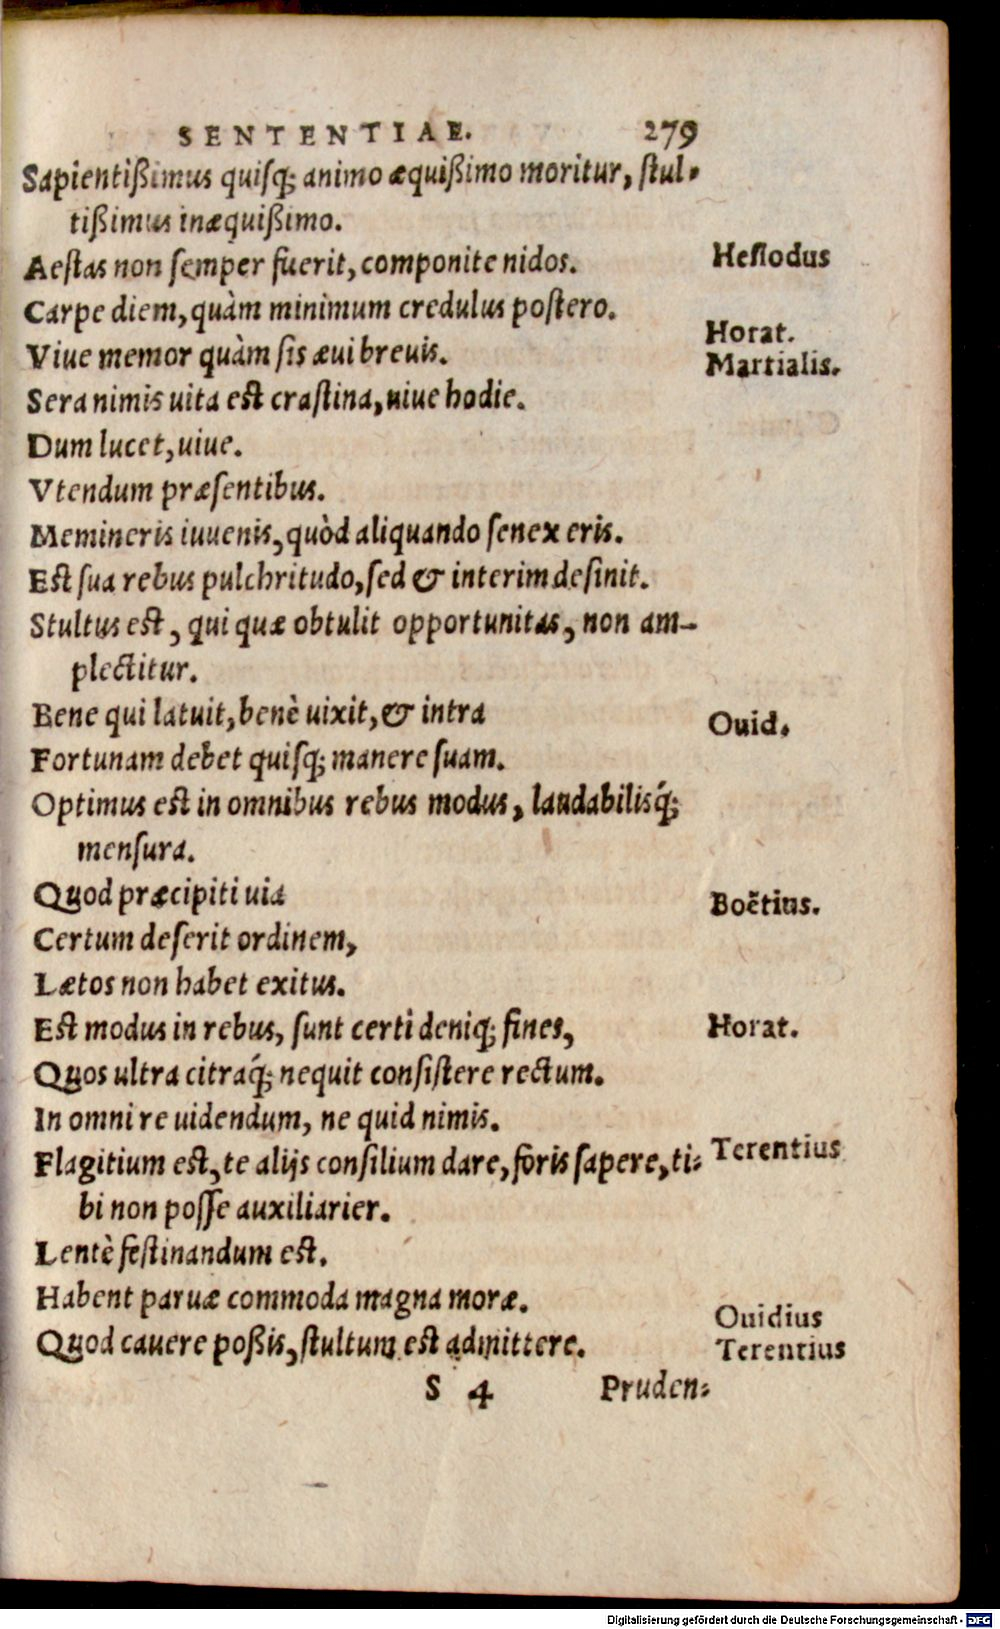 SENTENTIAE. 279
Sapientißimus quisq; animo æquißimo moritur, stul-
tißimus inæquißimo.
Aestas non semper fuerit, componite nidos. Hesiodus
Carpe diem, quàm minimum credulus postero.
Horat.
Viue memor quàm sis æui breuis.
Martialis.
Sera nimis uita est crastina, uiue hodie.
Dum lucet, uiue.
Vtendum præsentibus.
Memineris iuuenis, quòd aliquando senex eris.
Est sua rebus pulchritudo, sed & interim desinit.
Stultus est, qui quæ obtulit opportunitas, non am-
plectitur.
Bene qui latuit, benè uixit, & intra Ouid.
Fortunam debet quisq; manere suam.
Optimus est in omnibus rebus modus, laudabilisq́;
mensura.
Quod præcipiti uia Boëtius.
Certum deserit ordinem,
Lætos non habet exitus.
Est modus in rebus, sunt certi deniq; fines, Horat.
Quos ultra citraq́; nequit consistere rectum.
In omni re uidendum, ne quid nimis.
Flagitium est, te alijs consilium dare, foris sapere, ti- Terentius
bi non posse auxiliarier.
Lentè festinandum est.
Habent paruæ commoda magna moræ. Ouidius
Quod cauere poßis, stultum est admittere. Terentius
S 4 Pruden-
Digitalisierung gefördert durch die Deutsche Forschungsgemeinschaft - DFG